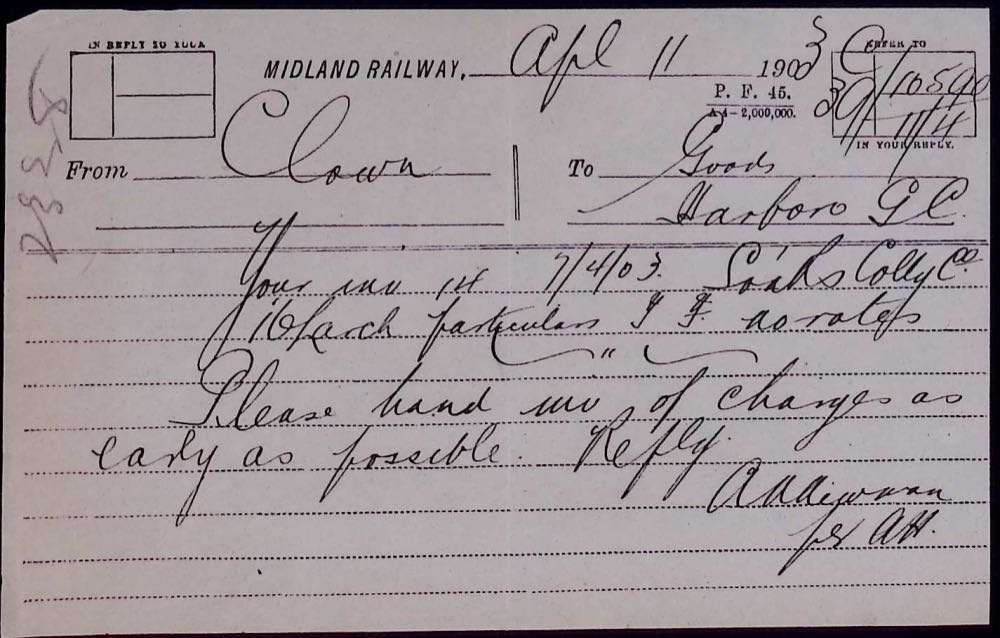 IN REPLY TO YOUR
MIDLAND RAILWAY, Apl 11 1903
REFER TO
C
39/10590
11/4
IN YOUR REPLY.
P. F. 45.
A A–2,000,000.
From Clown
To Goods
Harboro G C.
Your inv 14 7/4/03. Colly Co.
particulars no rates
"
Please hand inv of charges as
early as possible. Reply.
per AH.